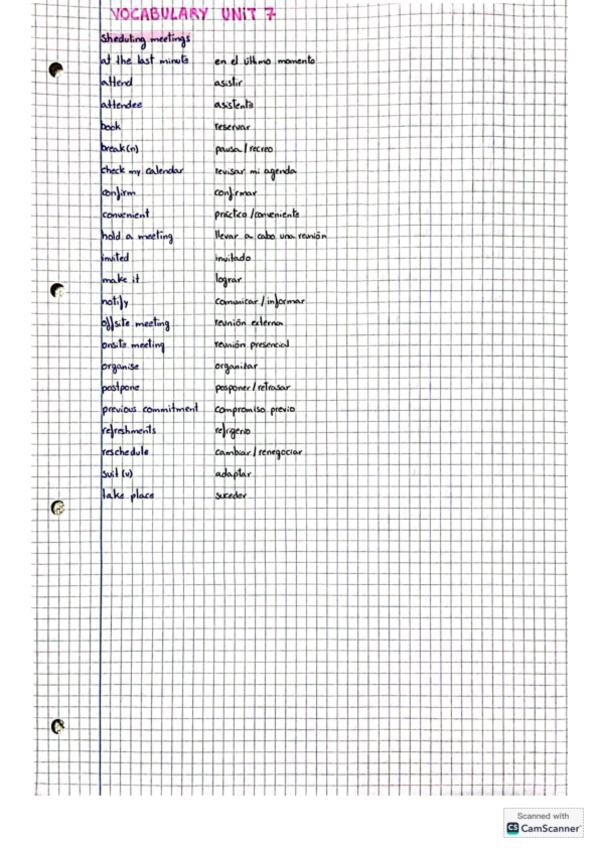 VOCABULARY UNIT 7
Sheduling meetings
at the last minute en el último momento
attend asistir
attendee asistente
book reservar
break(n) pausa / recreo
check my calendar revisar mi agenda
confirm confirmar
convenient práctico / conveniente
hold a meeting llevar a cabo una reunión
invited invitado
make it lograr
notify comunicar / informar
offsite meeting reunión externa
onsite meeting reunión presencial
organise organizar
postpone posponer / retrasar
previous commitment compromiso previo
refreshments refrigerio
reschedule cambiar / renegociar
suit (v) adaptar
take place suceder
Scanned with
CS CamScanner